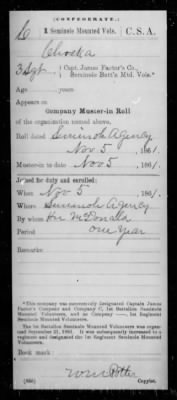 (CONFEDERATE.)
C 1 Seminole Mounted Vols. C.S.A.
Chocka
3 Sgt, Capt. James Factor's Co.,
Seminole Batt'n Mtd. Vols.*
Age years
Appears on
Company Muster-in Roll
of the organization named above.
Roll dated Seminole Agency
Nov 5, 1861.
Muster-in to date Nov 5, 1861.
Joined for duty and enrolled:
When Nov 5, 1861.
Where Seminole Agency
By whom Hr. McDonald
Period one Year
Remarks:
*This company was successively designated Captain James
Factor's Company and Company C, 1st Battalion Seminole
Mounted Volunteers, and as Company , 1st Regiment
Seminole Mounted Volunteers.
The 1st Battalion Seminole Mounted Volunteers was organized
September 21, 1861. It was subsequently increased to a
regiment and designated the 1st Regiment Seminole
Mounted Volunteers.
Book mark:
Wm Potter
Copyist.